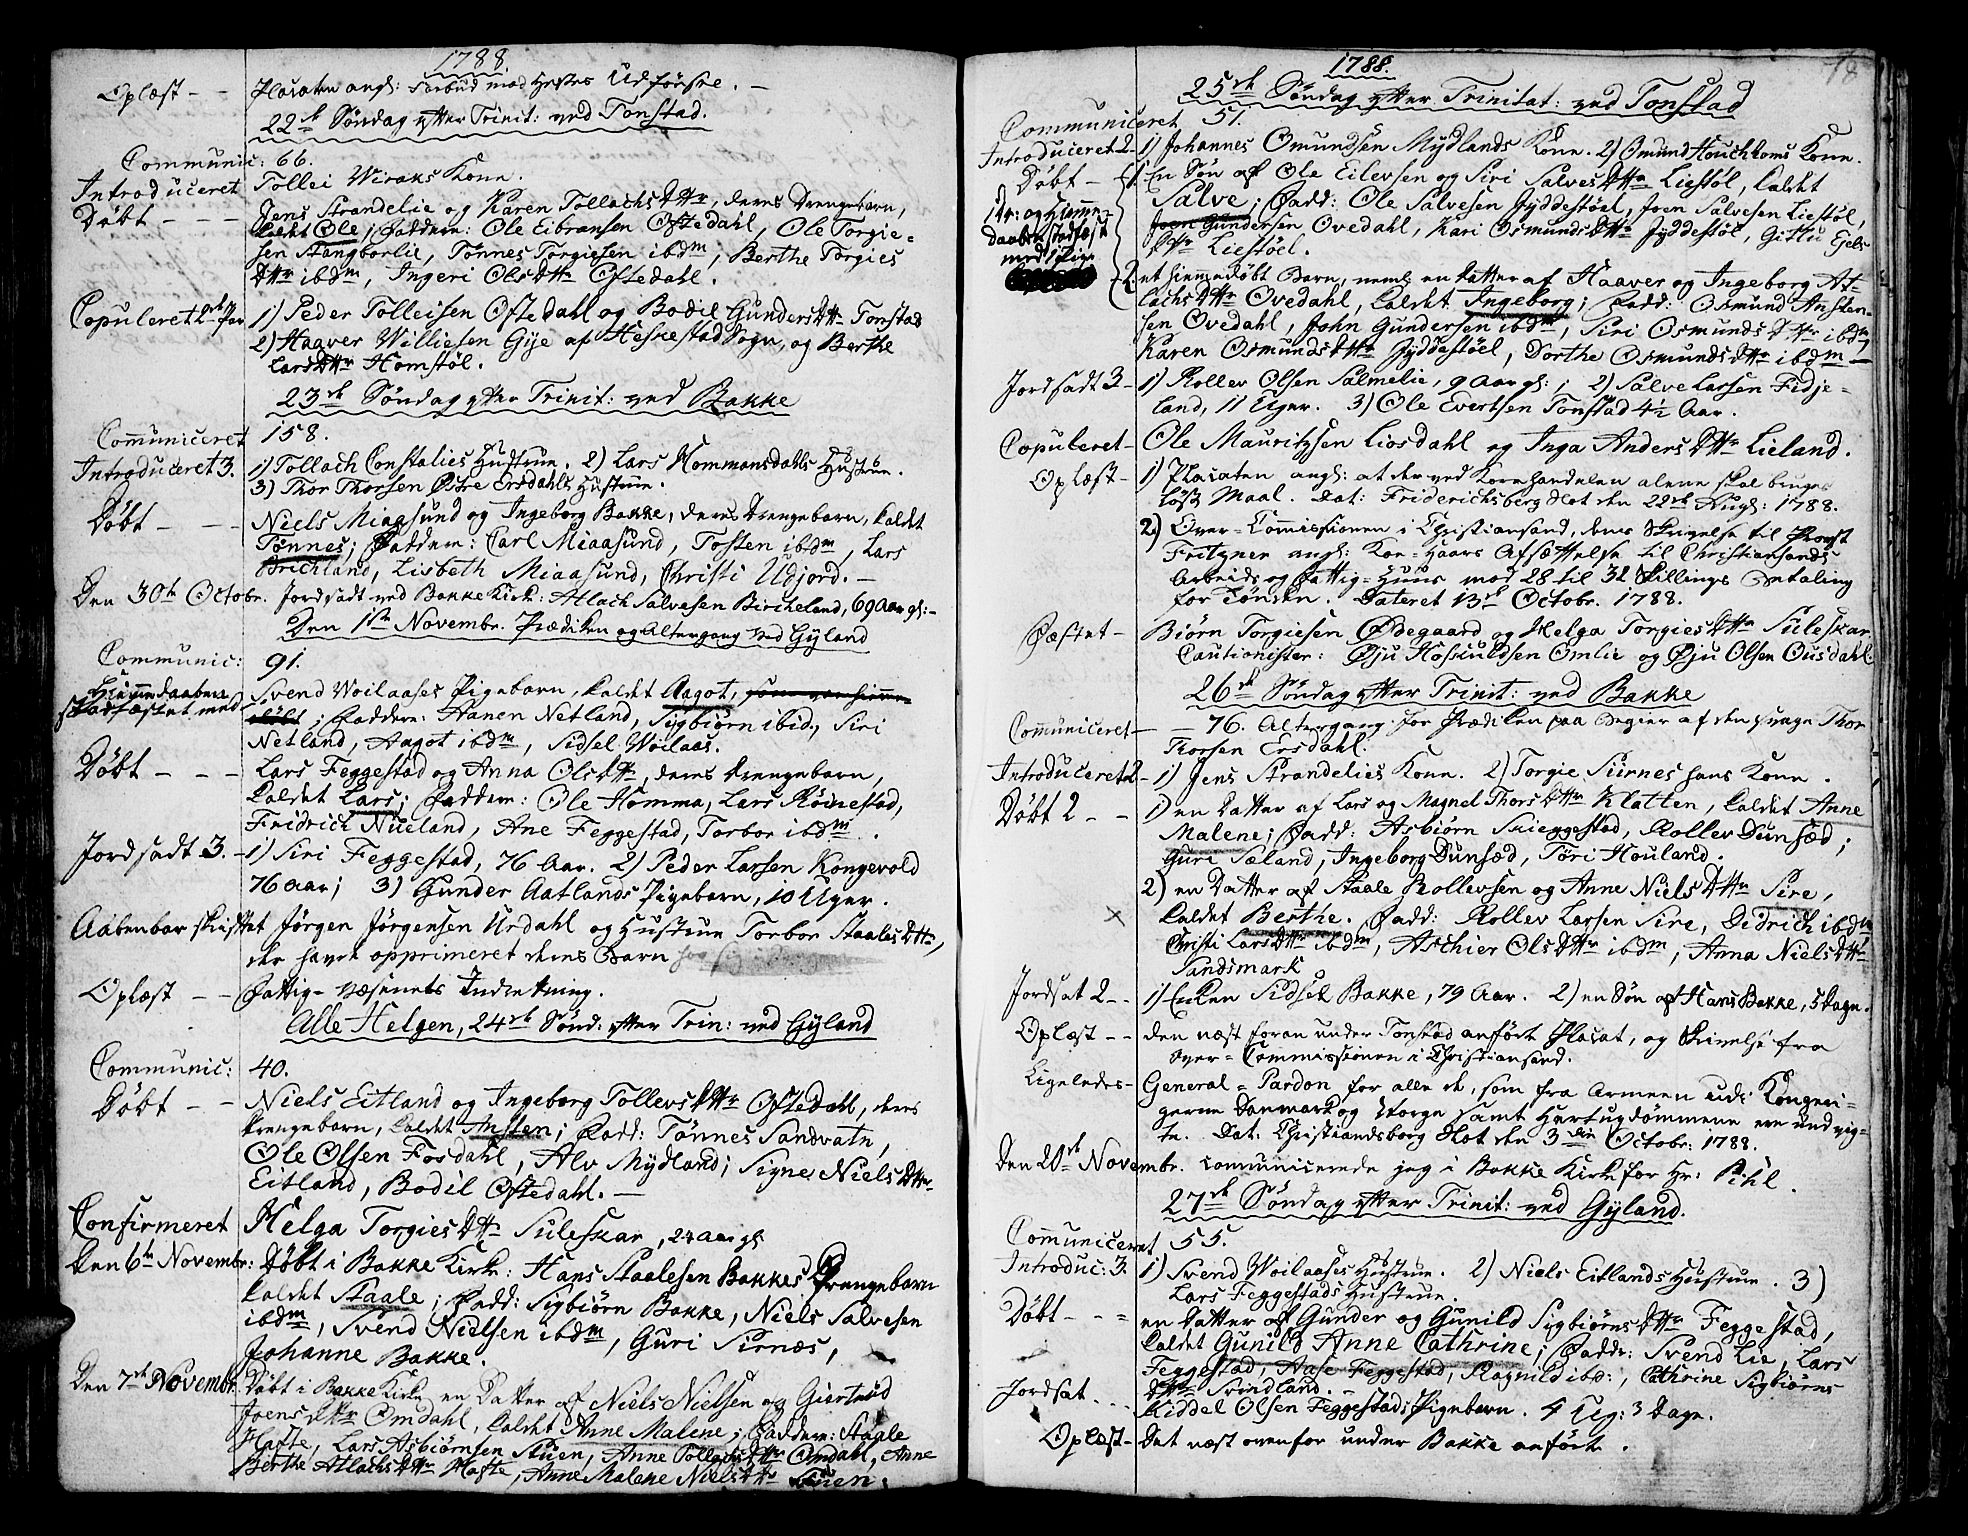 1788.
Oplæst - - Placaten angl: Forbud mod Hestes Udførsel. -
22de Søndag efter Trinit: ved Tonstad.
Communic: 66.
Introduceret Tollei Wiraks Kone.
Døbt - - - Jens Strandelie og Karen Tollachs Dttr, deres Drengebarn,
kaldt Ole; Faddere: Ole Eibransen Oftedahl, Ole Torgie-
sen Stangborlie, Tønnes Torgiesen ibdm, Berthe Torgies
Dttr ibdm, Ingeri Ols Dttr Oftedahl.
Copuleret 2de Par 1) Peder Tolleisen Oftedahl og Bodil Gunders Dttr Tonstad
2) Haaver Williesen Gije af Heskestad Sogn, og Berthe
Lars Dttr Homstøl.
23de Søndag efter Trinit: ved Bakke
Communiceret 158.
Introduceret 3. 1) Tollach Constalies Hustrue. 2) Lars Hommansdahls Hustrue.
3) Thor Thorsen Østre Ersdahls Hustrue.
Døbt - - - Niels Miaasund og Ingeborg Bakke, deres Drengebarn, kaldet
Tønnes; Faddere: Carl Miaasund, Tosten ibdm, Lars
Birchland, Lisbeth Miaasund, Christi Udjord. -
Den 30te Octobr. Jordsadt ved Bakke Kirk: Atlach Salvesen Bircheland, 69 Aar gl: -
Den 1ste Novembr. Prædiken og Altergang ved Gyland
Communic: 91.
Hiemmedaaben
stadfæstet med Svend Woilaases Pigebarn, kaldet Aagot, som var hiemme-
døbt; Faddere: Hanen Netland, Sigbiørn ibid, Siri
Netland, Aagot ibdm, Sidsel Woilaas.
Døbt - - - Lars Feggestad og Anna Ols Dttr, deres Drengebarn,
kaldet Lars; Faddere: Ole Homma, Lars Røinestad,
Fridrich Nueland, Ane Feggestad, Torbor ibdm.
Jordsadt 3. - 1) Siri Feggestad, 76 Aar. 2) Peder Larsen Kongevold
76 Aar; 3) Gunder Aatlands Pigebarn, 10 Uger.
Aabenbar skriftet Jørgen Jørgensen Urdahl og Hustrue Torbor Staales Dttr,
der havde opprimeret deres Barn
Oplæst - - Fattig-Væsenets Indretning.
Alle Helgen, 24de Sønd: efter Trin: ved Gyland
Communic: 40.
Døbt - - Niels Eitland og Ingeborg Tollevs Dttr Oftedahl, deres
Drengebarn, kaldet Ansten; Fadd: Tønnes Sandvatn,
Ole Olsen Fosdahl, Alv Mydland; Signe Niels Dttr
Eitland, Bodil Oftedahl. -
Confirmeret Helga Torgies Dttr Suleskar, 24 Aar gl.
Den 6te Novembr: Døbt i Bakke Kirke: Hans Staalesen Bakkes Drengebarn
kaldet Staale; Fadd: Sigbiørn Bakke, Niels Salvesen
ibdm, Svend Nielsen ibdm, Guri Sirnæs,
Johanne Bakke.
Den 7de Novembr. Døbt i Bakke Kirke en Datter af Niels Nielsen og Giertrud
Joens Dttr Omdahl, kaldet Anne Malene; Faddere: Staale
Hafte, Lars Asbiørnsen Stuen, Anne Tollachs Dttr Omdahl, Anne
Berthe Atlachs Dttr Hafte, Anne Malene Niels Dttr Stuen.
1788.
25de Søndag efter Trinitat: ved Tonstad
Communiceret 51.
Introduceret 2 - 1) Johannes Omundsen Mydlands Kone. 2) Omund Houchhoms Kone.
Døbt - 1. En Søn af Ole Eilevsen og Siri Salves Dttr Liestøl, kaldet
Salve; Fadd: Ole Salvesen Jyddestøel, Joen Salvesen Liestøl,
Joen Gundersen, Ovedahl, Kari Osmunds Dttr Jyddestøl, Gitlu Ejels
Dttr Liestøel.
1 Dr: og Hiemme-
daaben stadfæst
med 1 Pige
2. et hiemmedøbt Barn, neml: en Datter af Haaver og Ingeborg At-
lachs Dttr Ovedahl, kaldet Ingeborg; Fadd: Osmund Ansten-
sen Ovedahl, John Gundersen ibdm, Siri Osmunds Dttr ibdm
Karen Osmunds Dttr Jyddestøel, Dorthe Osmunds Dttr ibdm -
Jordsadt 3 - 1) Rollev Olsen Salmelie, 9 Aar gl:; 2) Salve Larsen Fidje-
land, 11 Uger. 3) Ole Evertsen Tonstad 4½ Aar.
Copuleret - Ole Mauritzsen Liosdahl og Inga Anders Dttr Lieland.
Oplæst - 1) Placaten angl: at der ved Kornhandelen alene skal bruges
løst Maal. Dat: Friderichsberg Slot den 22de Augl: 1788.
2) Over-Commissionen i Christiansand, deres Skrivelse til Provst
Fritzner angl: Koe-Haars Afsættelse til Christiansands
Arbeids og Fattig-Huus mod 28 til 32 Skillings Betaling
for Tønden. Dateret 13de Octobr. 1788.
Fæstet - Biørn Torgiesen Ødegaard og Helga Torgies Dttr Suleskar
Cautionister: Øju Hosculdsen Omlie og Øju Olsen Ousdahl.
26de Søndag efter Trinit: ved Bakke
Communiceret - - 76. Altergang for Prædiken paa Begier af den siuge Thor
Thorsen Ersdahl.
Introduceret 2 - 1) Jens Strandelies Kone. 2) Torgie Siirnes hans Kone.
Døbt 2 - - 1) en Datter af Lars og Magnel Thors Dttr Klatten, kaldet Anne
Malene; Fadd: Asbiørn Skieggestad, Rollev Dunsæd;
Guri Sæland, Ingeborg Dunsæd, Tøri Houland.
2) en Datter af Staale Rollevsen og Anne Niels Dttr Sire,
kaldet Berthe. Fadd: Rollev Larsen Sire, Didrich ibdm
Christi Lars Dttr ibdm, Aschier Ols Dttr ibdm, Anna Niels Dttr
Sandsmark
Jordsat 2 - - 1) Enken Sidsel Bakke, 79 Aar. 2) en Søn af Hans Bakke, 5 Dage.
Oplæst - - den næst foran under Tonstad anførte Placat, og Skrivelse fra
Over-Commissionen i Christiansand.
Ligeledes - General-Pardon for alle de, som fra Armeen udi Kongeri-
gerne Danmark og Norge samt Hertugdømmene ere undvig-
te. Dat: Christiandsborg Slot den 3die Octobr: 1788.
Den 20de Novembr. communicerede jeg i Bakke Kirke for Hr: Pihl.
27de Søndag efter Trinit: ved Gyland.
Communiceret 55.
Introduc: 3. 1) Svend Woilaases Hustrue. 2) Niels Eitlands Hustrue. 3)
Lars Feggestads Hustrue.
Døbt - - - en Datter af Gunder og Gunild Sigbiørns Dttr Feggestad,
kaldet Gunild Anne Cathrine; Faddr: Svend Lie, Lars
Feggestad, Aase Feggestad, Ragnild ibd:, Cathrine Sigbiørns
Dttr Svindland. -
Jordsat - - - Kiddel Olsen Feggestads Pigebarn. 4 Ug: 3 Dage.
Oplæst - Det næst ovenfor under Bakke anførte.